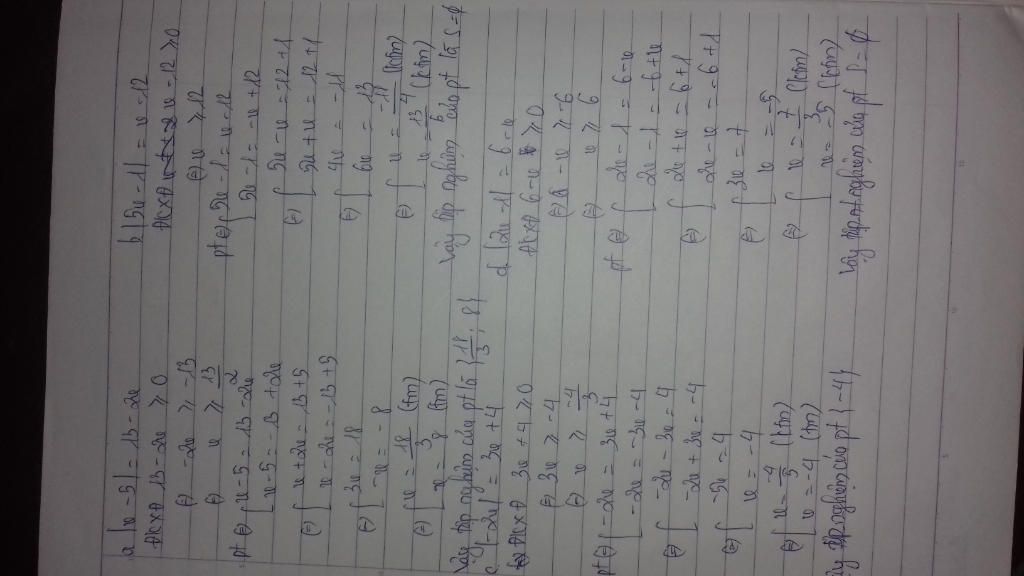 a, |x-5| = 13-2x
ĐKXĐ 13-2x ≥ 0
(=) -2x ≥ -13
(=) x ≥ 13/2
pt (=) [ x-5 = 13-2x
[ x-5 = -13+2x
(=) [ x+2x = 13+5
[ x-2x = -13+5
(=) [ 3x = 18
[ -x = -8
(=) [ x = 18/3 (tm)
[ x = 8 (tm)
Vậy tập nghiệm của pt là {18/3; 8}
c, |-2x| = 3x+4
ĐKXĐ 3x+4 ≥ 0
(=) 3x ≥ -4
(=) x ≥ -4/3
pt (=) [ -2x = 3x+4
[ -2x = -3x-4
(=) [ -2x-3x = 4
[ -2x+3x = -4
(=) [ -5x = 4
[ x = -4
(=) [ x = -4/5 (ktm)
[ x = -4 (tm)
nghiệm của pt {-4}
b, |5x-1| = x-12
ĐKXĐ x-12 ≥ 0
(=) x ≥ 12
pt (=) [ 5x-1 = x-12
[ 5x-1 = -x+12
(=) [ 5x-x = -12+1
[ 5x+x = 12+1
(=) [ 4x = -11
[ 6x = 13
(=) [ x = -11/4 (ktm)
[ x = 13/6 (ktm)
Vậy tập nghiệm của pt là S = ∅
d, |2x-1| = 6-x
ĐKXĐ 6-x ≥ 0
(=) -x ≥ -6
(=) x ≥ 6
pt (=) [ 2x-1 = 6-x
[ 2x-1 = -6+x
(=) [ 2x+x = 6+1
[ 2x-x = -6+1
(=) [ 3x = 7
[ x = -5
(=) [ x = 7/3 (ktm)
[ x = -5 (ktm)
Vậy nghiệm của pt S = ∅